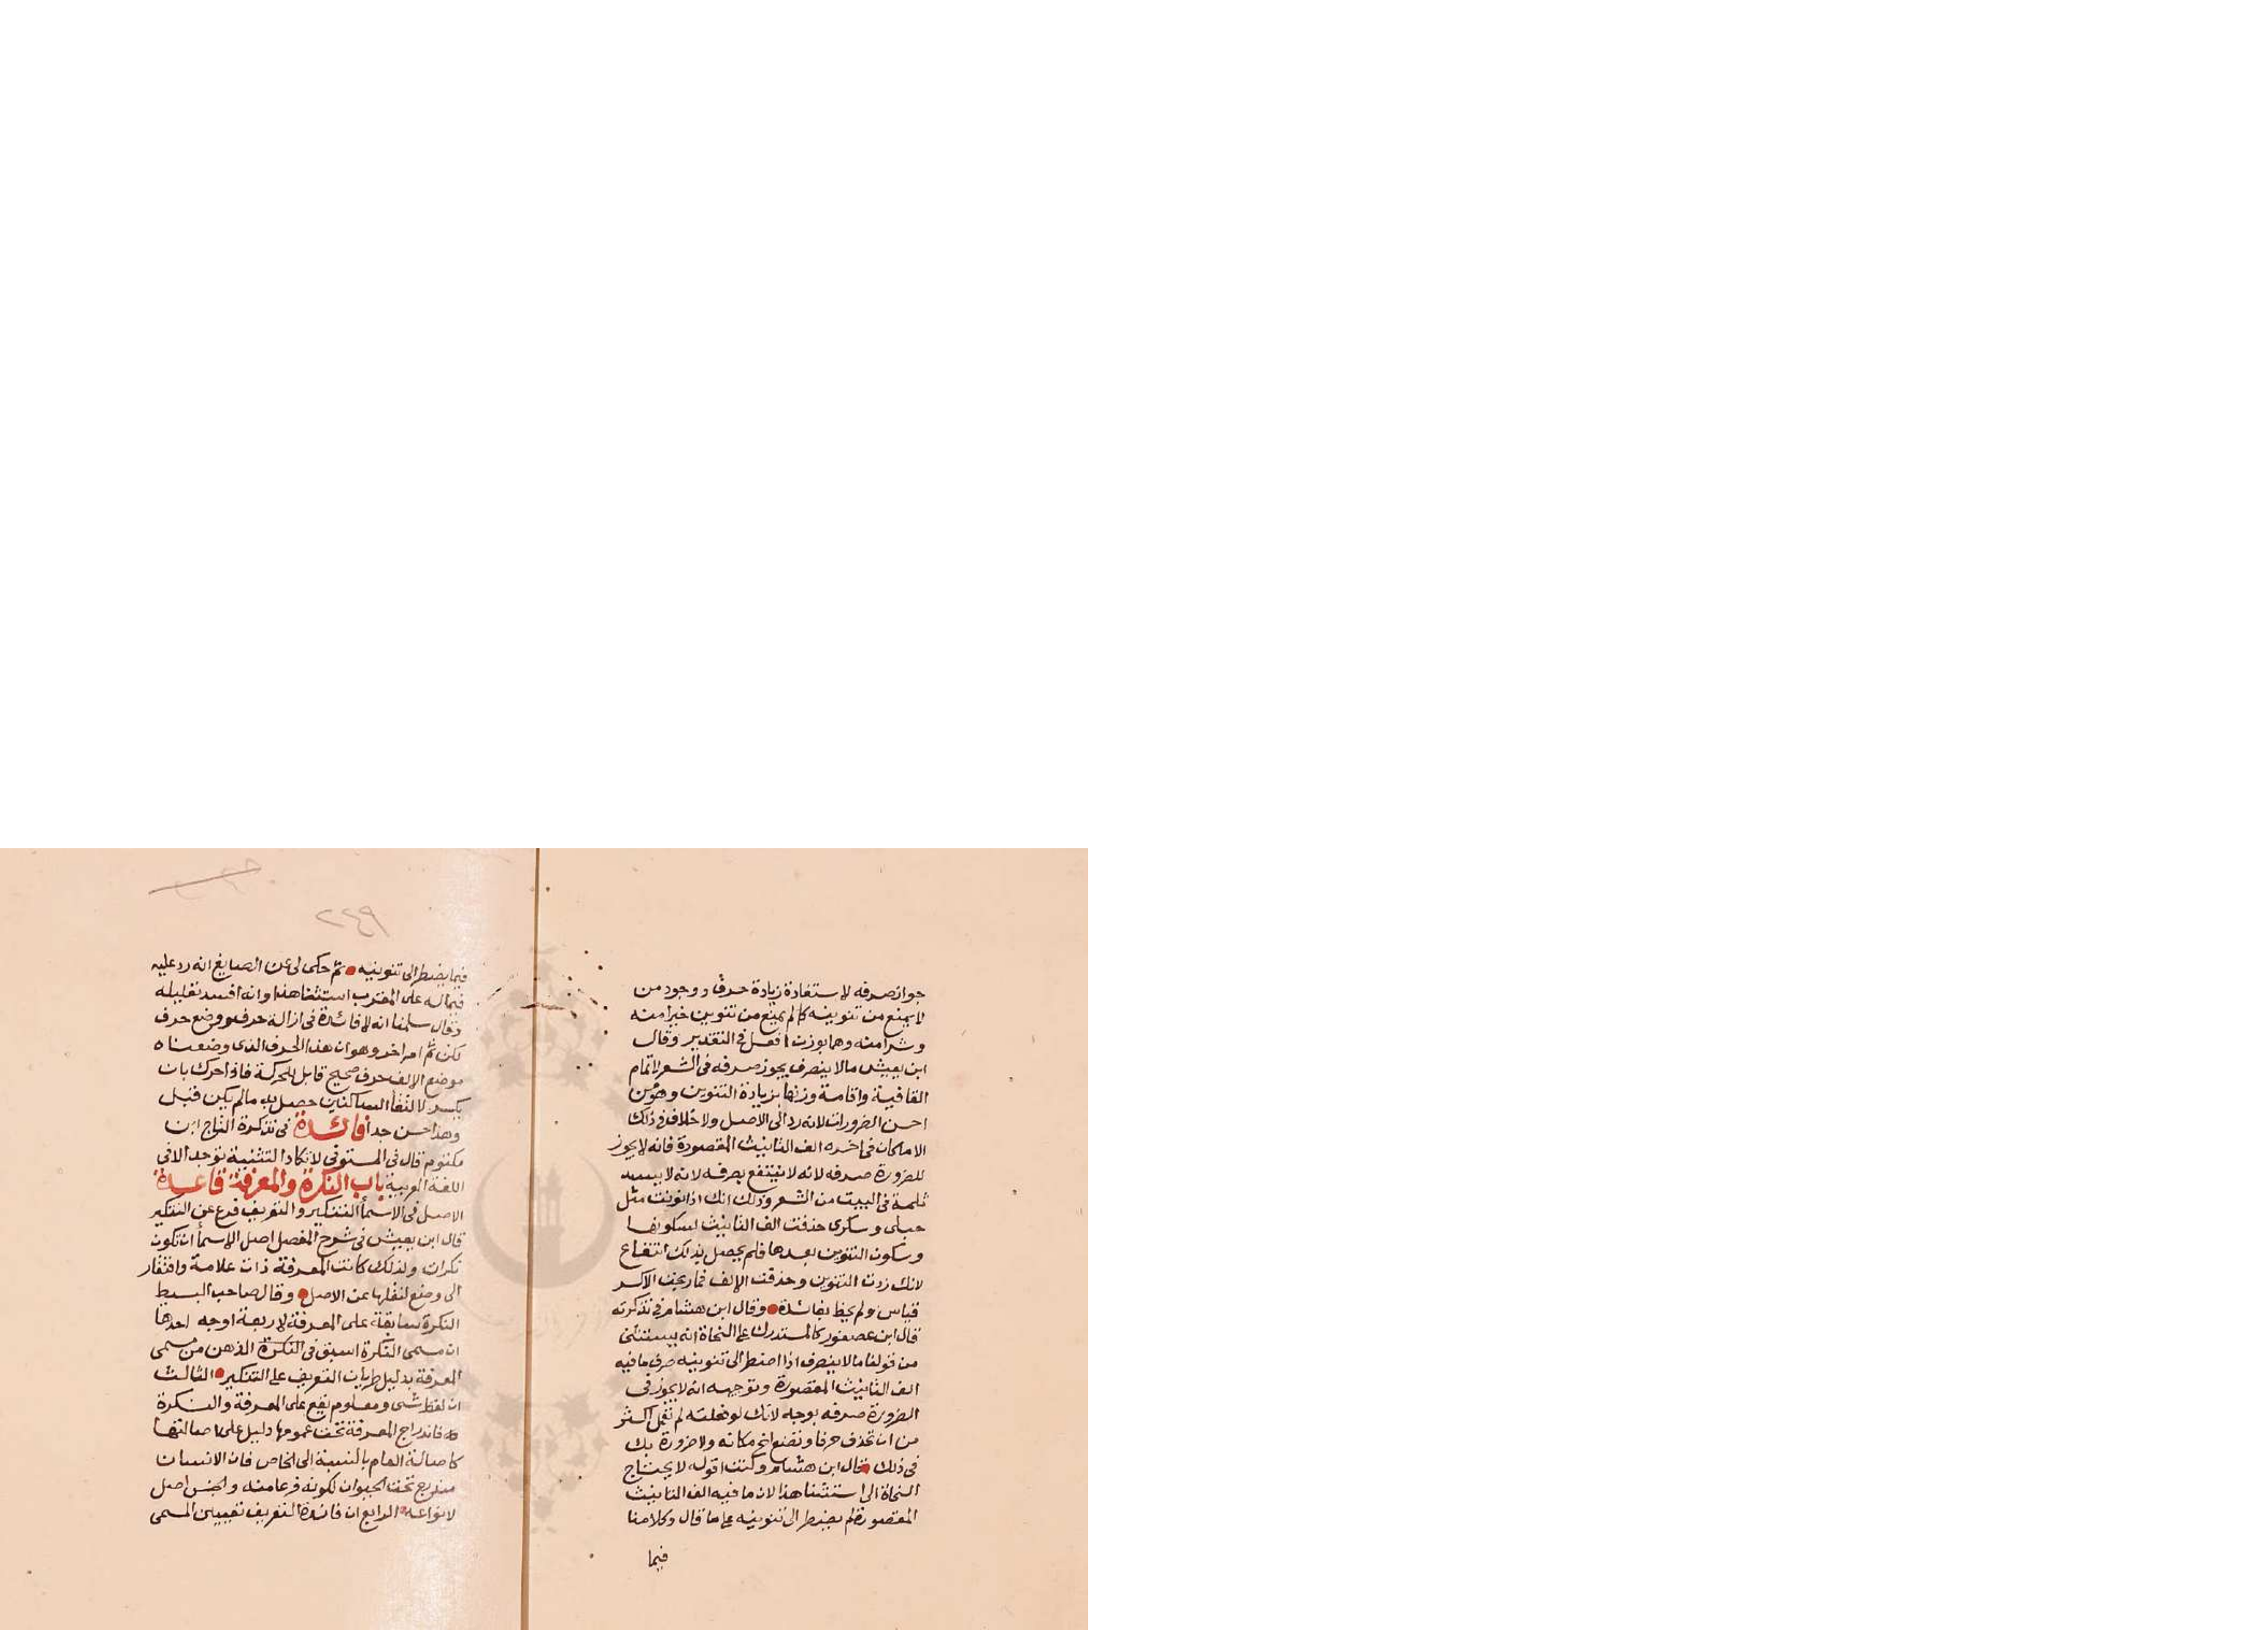 جواز صرفه لاستفادة زيادة حرف ووجود من
لا يمنع من تنوينه كما لم يمنع من تنوين خيرا منه
وشرا منه وهما بوزن افعل في التقدير وقال
ابن يعيش مالا ينصرف يجوز صرفه في الشعر لاتمام
القافية واقامة وزنها بزيادة التنوين وهو من
احسن الضرورات لانه رد الى الاصل ولا خلاف في ذلك
الا ما كان في اخره الف التانيث المقصورة فانه لا يجوز
للضرورة صرفه لانه لا ينتفع بصرفه لانه لا يسد
ثلمة في البيت من الشعر وذلك انك اذا نونت مثل
حبلى وسكرى حذفت الف التانيث لسكونها
وسكون التنوين بعدها فلم يحصل بذلك انتفاع
لانك زدت التنوين وحذفت الالف فما ربحت الا كسر
قياس ولم يحظ بفائدة وقال ابن هشام في تذكرته
قال ابن عصفور كالمستدرك على النحاة انه يستثنى
من قولنا مالا ينصرف اذا اضطر الى تنوينه صرف ما فيه
الف التانيث المقصورة وتوجيهه انه لا يجوز في
الضرورة صرفه بوجه لانك لو فعلته لم تعمل اكثر
من ان تحذف حرفا وتضع اخر مكانه ولا ضرورة بك
في ذلك قال ابن هشام وكنت اقول لا يحتاج
النحاة الى استثنا هذا لان ما فيه الف التانيث
المقصورة لم يضطر الى تنوينه على ما قال وكلامنا
فيما
٢٤٩
فيما يضطر الى تنوينه ثم حكى لى عن الصايغ انه رد عليه
فيما له على المقرب استثنا هذا وانه افسد تعليله
وقال سلمنا انه لا فائدة في ازالة حرف ووضع حرف
لكن ثم امر اخر وهو ان هذا الحرف الذى وضعناه
موضع الالف حرف صحيح قابل للحركة فاذا حرك بان
يكسر لالتقا الساكنين حصل به مالم يكن قبل
وهذا حسن جدا فائدة في تذكرة التاج ابن
مكتوم قال في المستوفى لا تكاد التثنية توجد الا فى
اللغة العربية باب النكرة والمعرفة قاعدة
الاصل في الاسما التنكير والتعريف فرع عن التنكير
قال ابن يعيش في شرح المفصل اصل الاسما ان تكون
نكرات ولذلك كانت المعرفة ذات علامة وافتقار
الى وضع لنقلها عن الاصل وقال صاحب البسيط
النكرة سابقة على المعرفة لاربعة اوجه احدها
ان مسمى النكرة اسبق في النكرة الذهن من مسمى
المعرفة بدليل طريان التعريف على التنكير الثالث
ان لفظ شى ومعلوم تقع على المعرفة والنكرة
فاندراج المعرفة تحت عمومها دليل على اصالتها
كاصالة العام بالنسبة الى الخاص فان الانسان
مندرج تحت الحيوان لكونه فرعا منه والجنس اصل
لانواعه الرابع ان فائدة التعريف تعيين المسمى